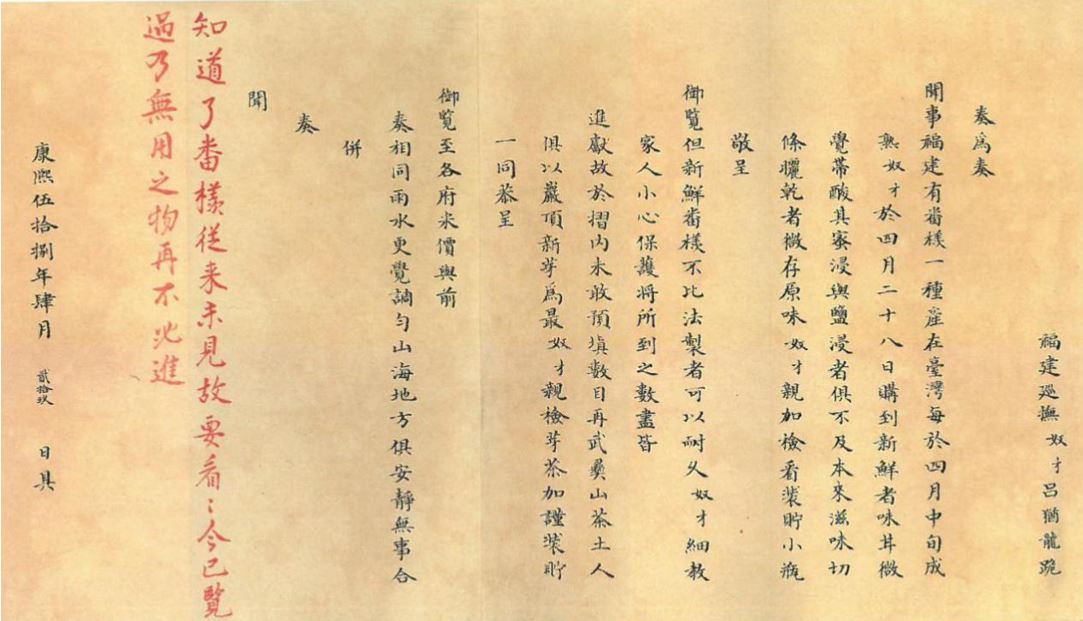 福建廵撫奴才呂猶龍跪
奏爲奏
聞事福建有番檨一種產在臺灣每於四月中旬成
熟奴才於四月二十八日購到新鮮者味甘微
覺帶酸其蜜浸與鹽浸者俱不及本來滋味切
條曬乾者微存原味奴才親加檢看裝貯小瓶
敬呈
御覽但新鮮番檨不比法製者可以耐久奴才細教
家人小心保護將所到之數盡皆
進獻故於摺內未敢預填數目再武彛山茶土人
俱以巖頂新芽爲最奴才親檢芽茶加謹裝貯
一同恭呈
御覽至各府米價與前
奏相同雨水更覺調勻山海地方俱安靜無事合
併
奏
聞
知道了番檨從来未見故要看々今已覽
過乃無用之物再不必進
康熙伍拾捌年肆月貳拾玖日具